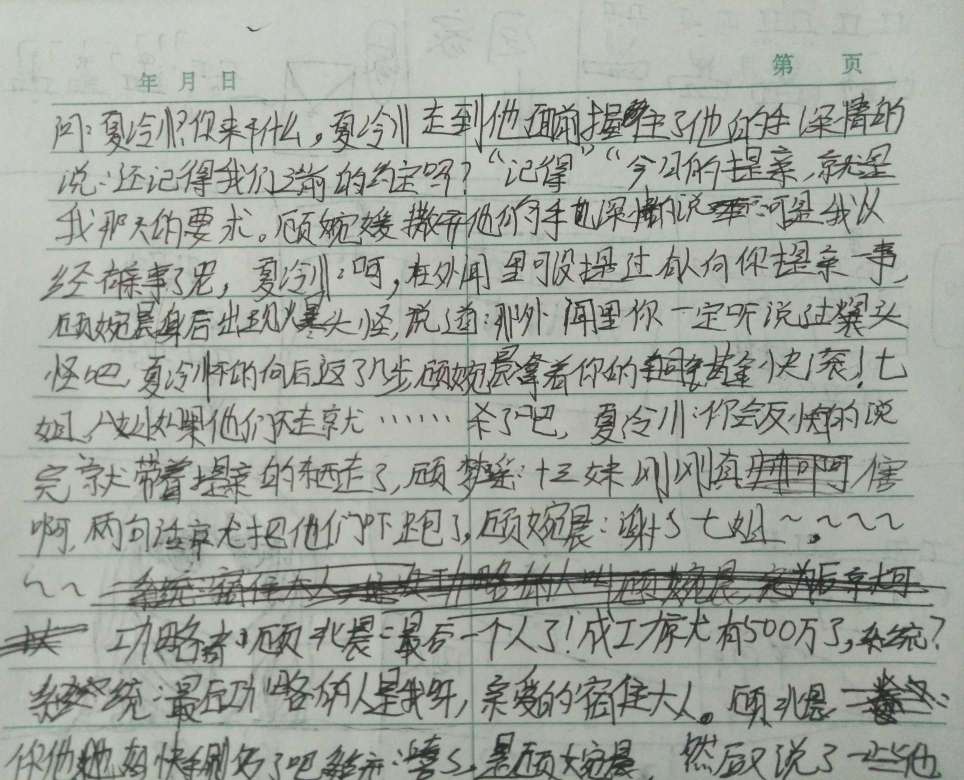 年 月 日 第 页
问:夏冷川?你来干什么,夏冷川走到他面前握住了他的手深情的
说:还记得我们之前的约定吗?“记得”“今日的提亲,就是
我那天的要求。顾婉媛撒开他的手 深情的说 可是我以
经 亲事了呢,夏冷川:呵,在外闻里可没提过有人向你提亲一事,
顾婉晨身后出现爆头怪,说道:那外闻里你一定听说过爆头
怪吧,夏冷川怀的向后返了几步顾婉晨拿着你的 黄金快滚!七
姐,八姐如果他们不走就……杀了吧,夏冷川:你会反悔的说
完就带着提亲的东西走了,顾梦瑶:十三妹刚刚真 厉害
啊,两句话就把他们吓跑了,顾婉晨:谢了七姐~~~~
~~
功略者顾北晨:最后一个人了!成工就有500万了,系统?
系统:最后功略的人是我呀,亲爱的宿住大人。顾北晨
你他 快 了吧 是顾婉晨,然后又说了一些他